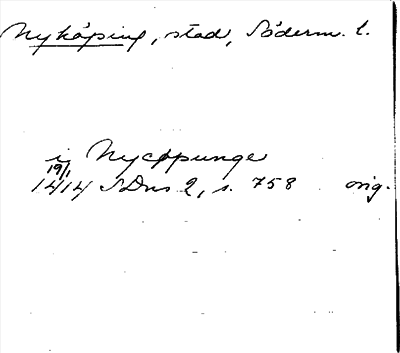 Nyköping, stad, Söderm. l.
j Nycöpunge
19/1
1414 SDns 2, s. 758 orig.